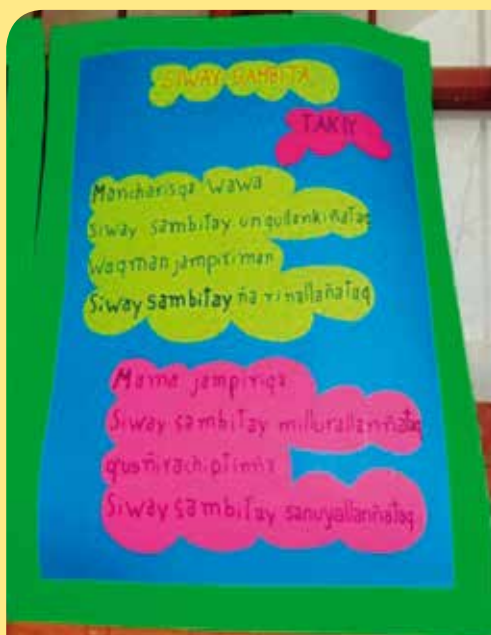 SIWAY SAMBITA
TAKIY
Mancharisqa wawa
Siway sambitay unqullankiñataq
Waqman jampiriman
Siway sambitay ña rinallañataq
Mama jampiriqa
Siway sambitay millurallanñataq
q'usñirachiptinña
Siway sambitay sanuyallanñataq